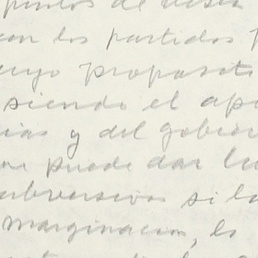 puntos de vista
con los partidos p
cuyo proposito
siendo el apo
ias y del gobier
puede dar lu
subversivos si la
marginacion, lo